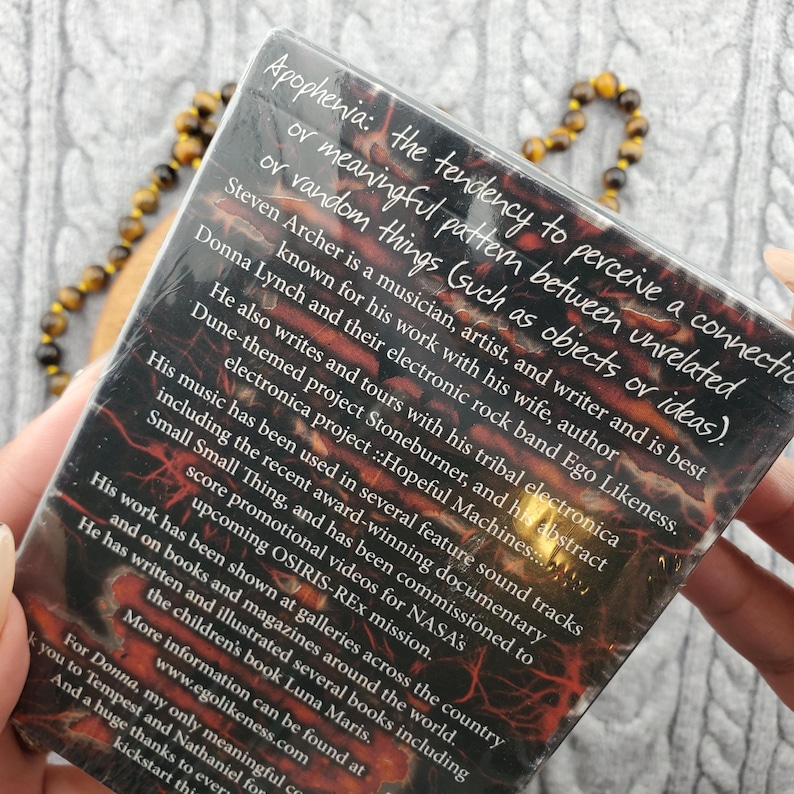 Apophenia: the tendency to perceive a
or meaningful pattern between unrelated
or random things (such as objects or ideas).
Steven Archer is a musician, artist, and writer and is best
known for his work with his wife, author
Donna Lynch and their electronic rock band Ego Likeness.
He also writes and tours with his tribal electronica
Dune-themed project Stoneburner, and his abstract
electronica project ::Hopeful Machines::.
His music has been used in several feature sound tracks
including the recent award-winning documentary
Small Small Thing, and has been commissioned to
score promotional videos for NASA's
upcoming OSIRIS-REx mission.
His work has been shown at galleries across the country
and on books and magazines around the world.
He has written and illustrated several books including
the children's book Luna Maris.
More information can be found at
www.egolikeness.com
For Donna, my only meaningful
you to Tempest and Nathaniel for
And a huge thanks to
kickstart